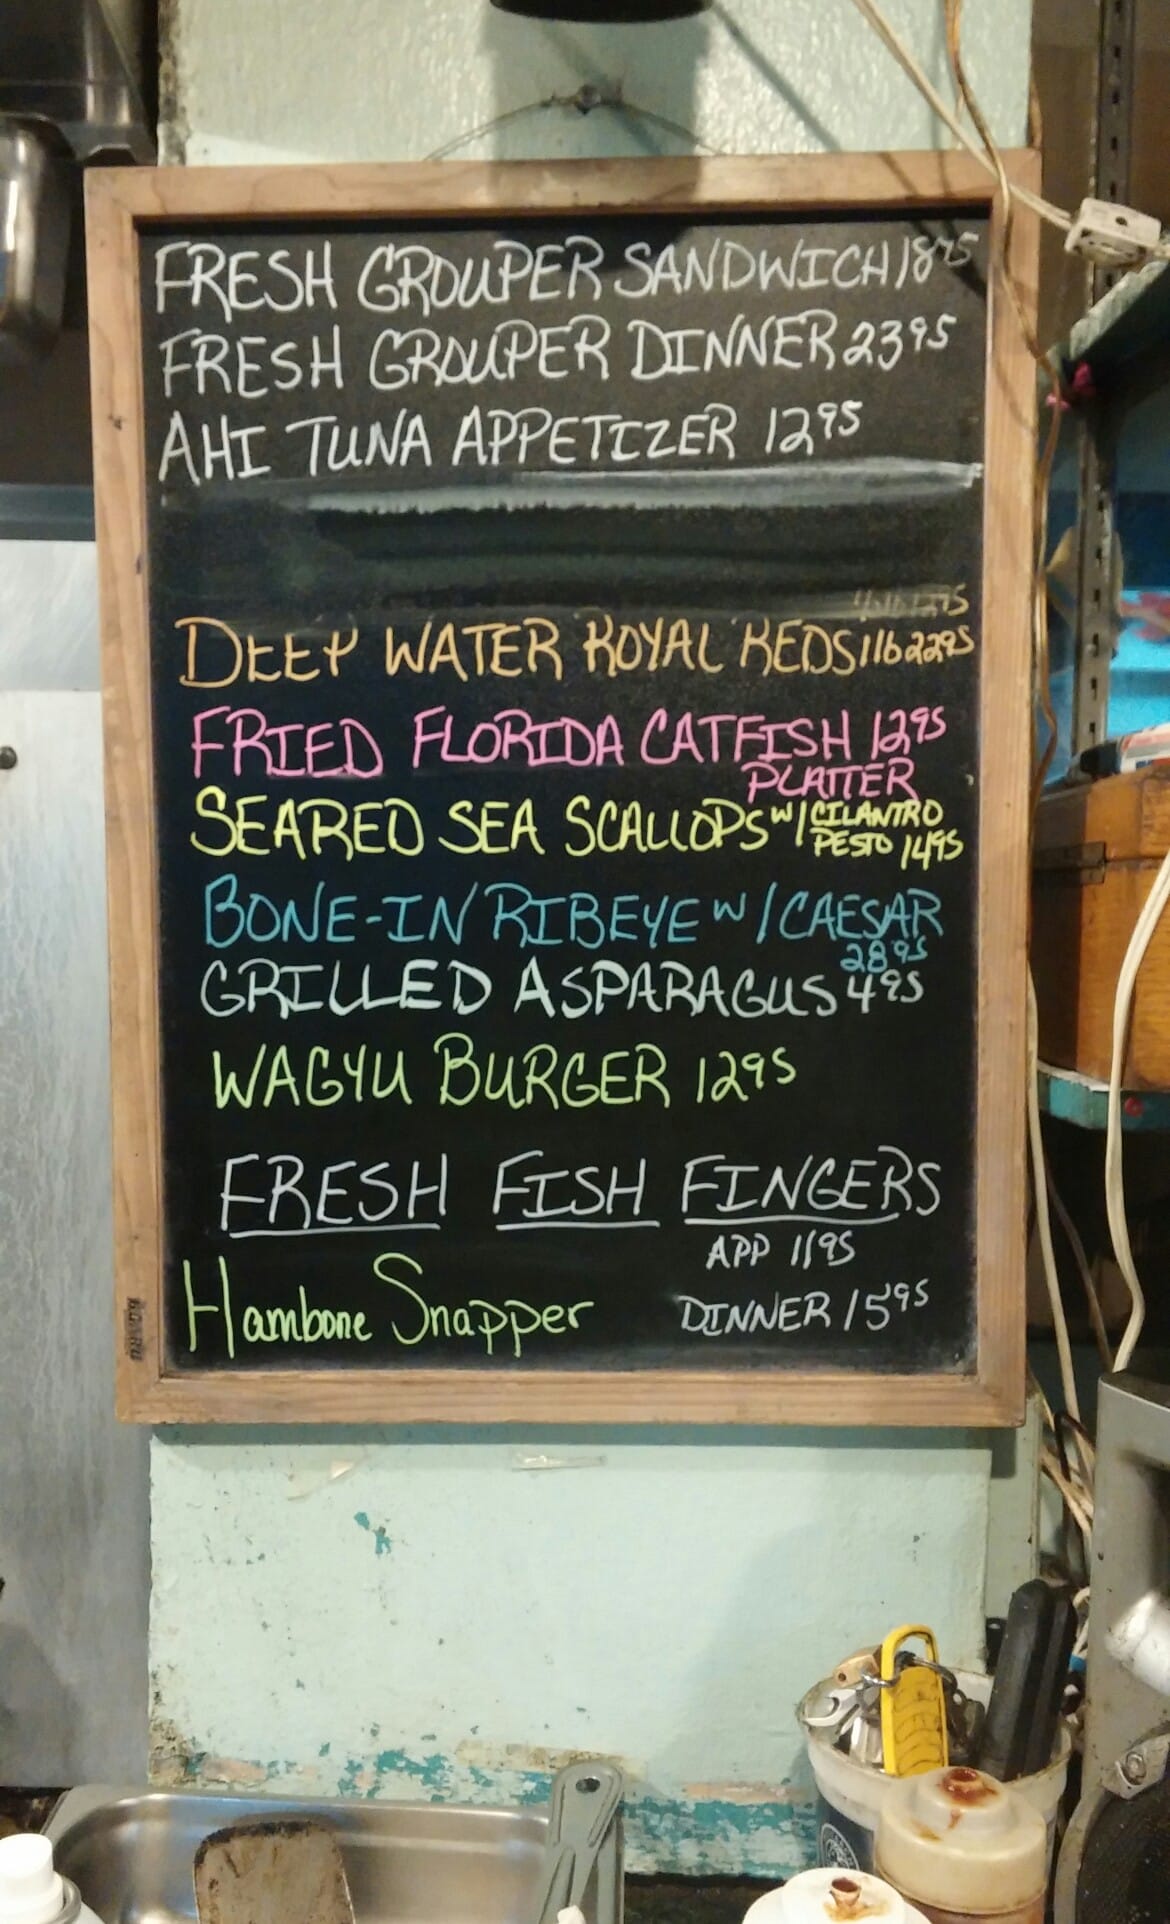 FRESH GROUPER SANDWICH 18⁷⁵
FRESH GROUPER DINNER 23⁹⁵
AHI TUNA APPETIZER 12⁹⁵
DEEP WATER ROYAL REDS 1lb 22⁹⁵
FRIED FLORIDA CATFISH 12⁹⁵
PLATTER
SEARED SEA SCALLOPS w/ CILANTRO
PESTO 14⁹⁵
BONE-IN RIBEYE w/ CAESAR
28⁹⁵
GRILLED ASPARAGUS 4⁹⁵
WAGYU BURGER 12⁹⁵
FRESH FISH FINGERS
APP 11⁹⁵
Hambone Snapper
DINNER 15⁹⁵